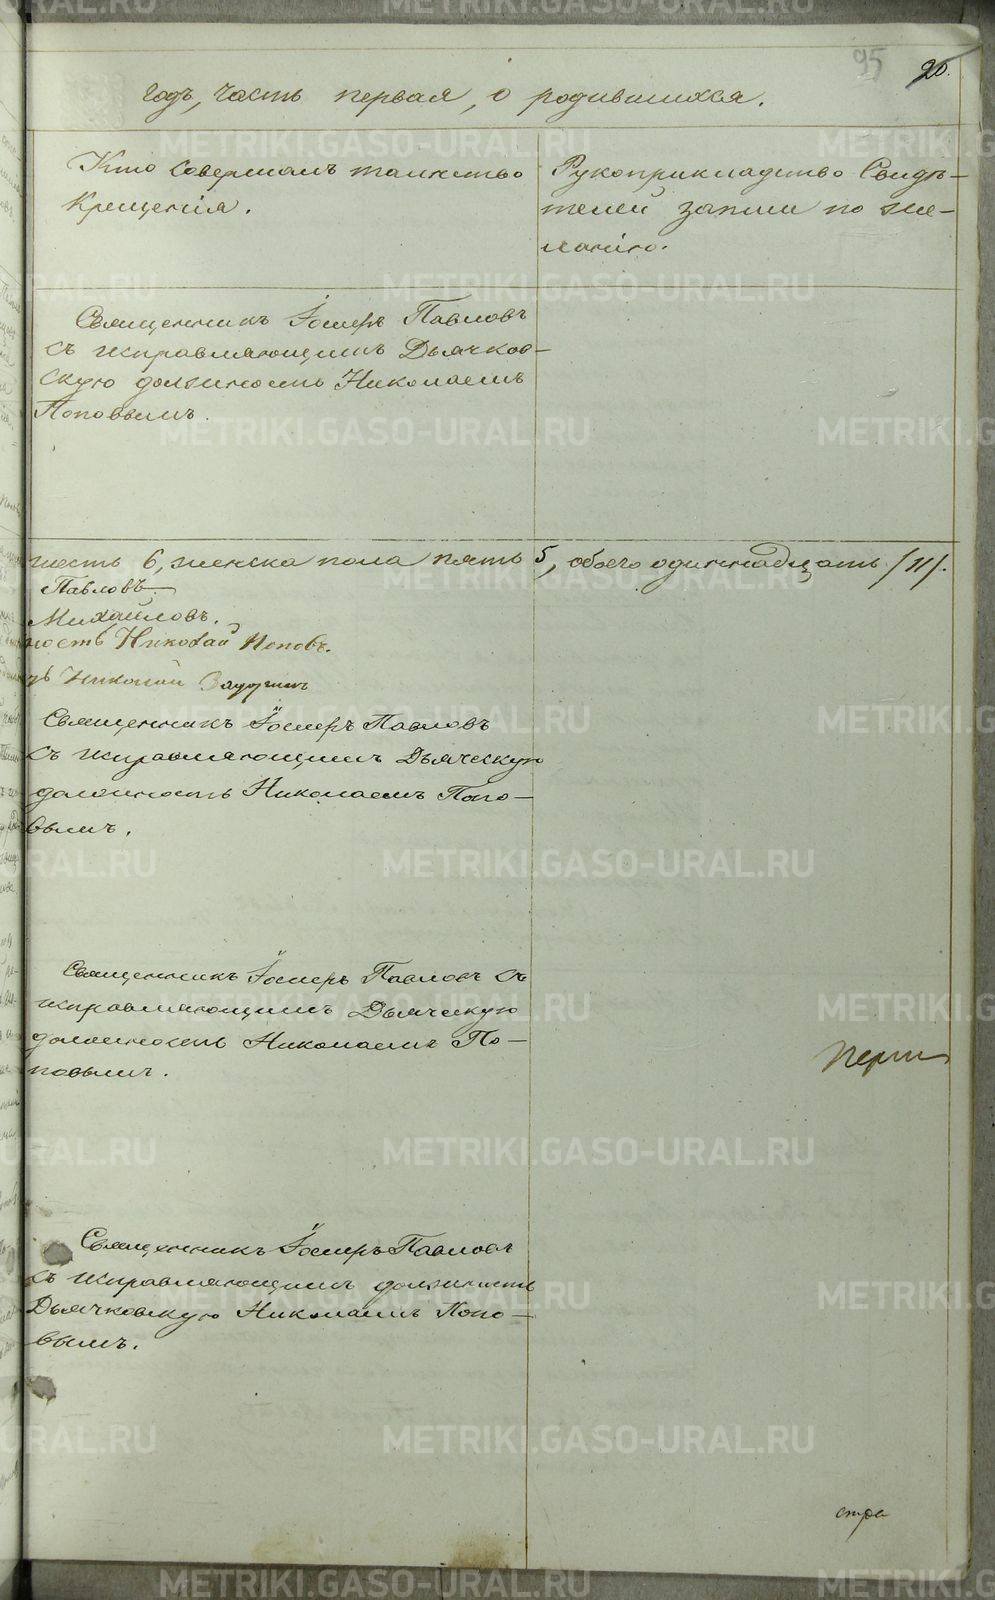 95
годъ, часть первая, о родившихся.
Кто совершалъ таинство
крещенія.
Рукоприкладство свидѣ-
телей записи по же-
ланію.
Священникъ Іосифъ Павловъ
съ исправляющимъ Дьячков-
скую должность Николаемъ
Поповымъ.
шесть 6, женска пола пять 5, обоего одиннадцать /11/.
Павловъ
Михайловъ.
ность Николай Поповъ.
Николай
Священникъ Іосифъ Павловъ
съ исправляющимъ Дьяческую
должность Николаемъ Попо-
вымъ.
Священникъ Іосифъ Павловъ съ
исправляющимъ Дьяческую
должность Николаемъ По-
повымъ.
Священникъ Іосифъ Павловъ
съ исправляющимъ должность
Дьячковскую Николаемъ Попо-
вымъ.
METRIKI.GASO-URAL.RU